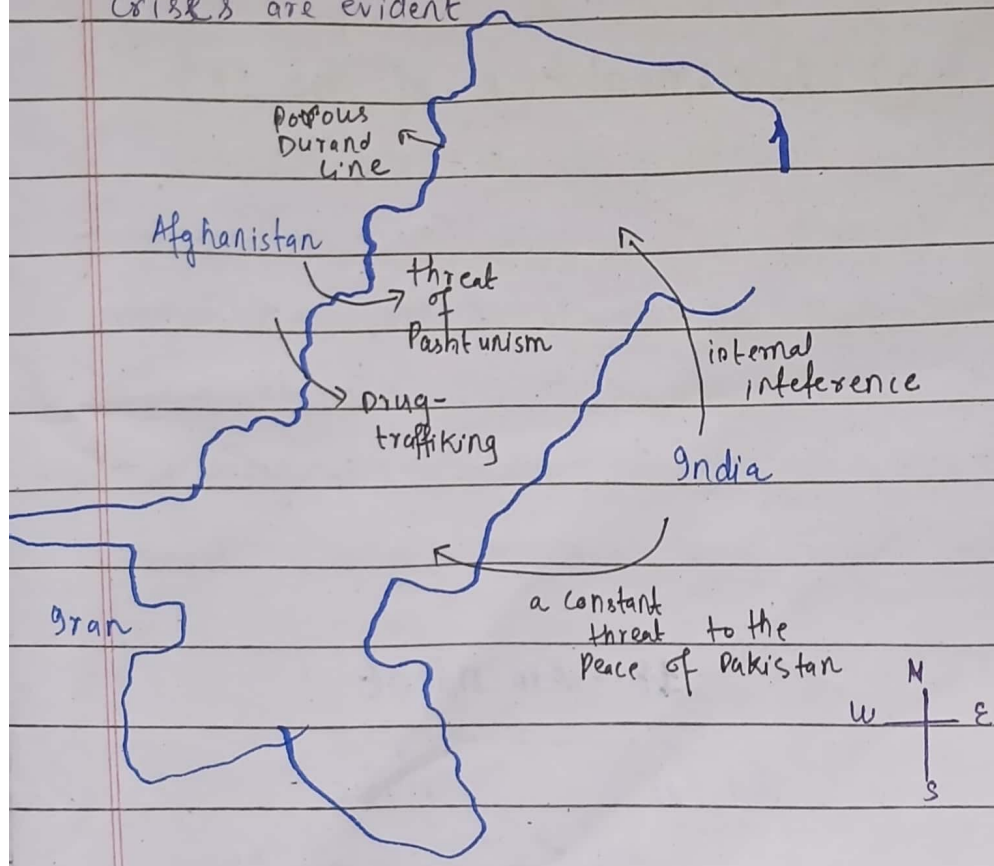 crises are evident
Porous
Durand
Line
Afghanistan
threat
of
Pashtunism
internal
inteference
Drug-
traffiking
India
a constant
threat to the
Peace of Pakistan
Iran
N
W E
S